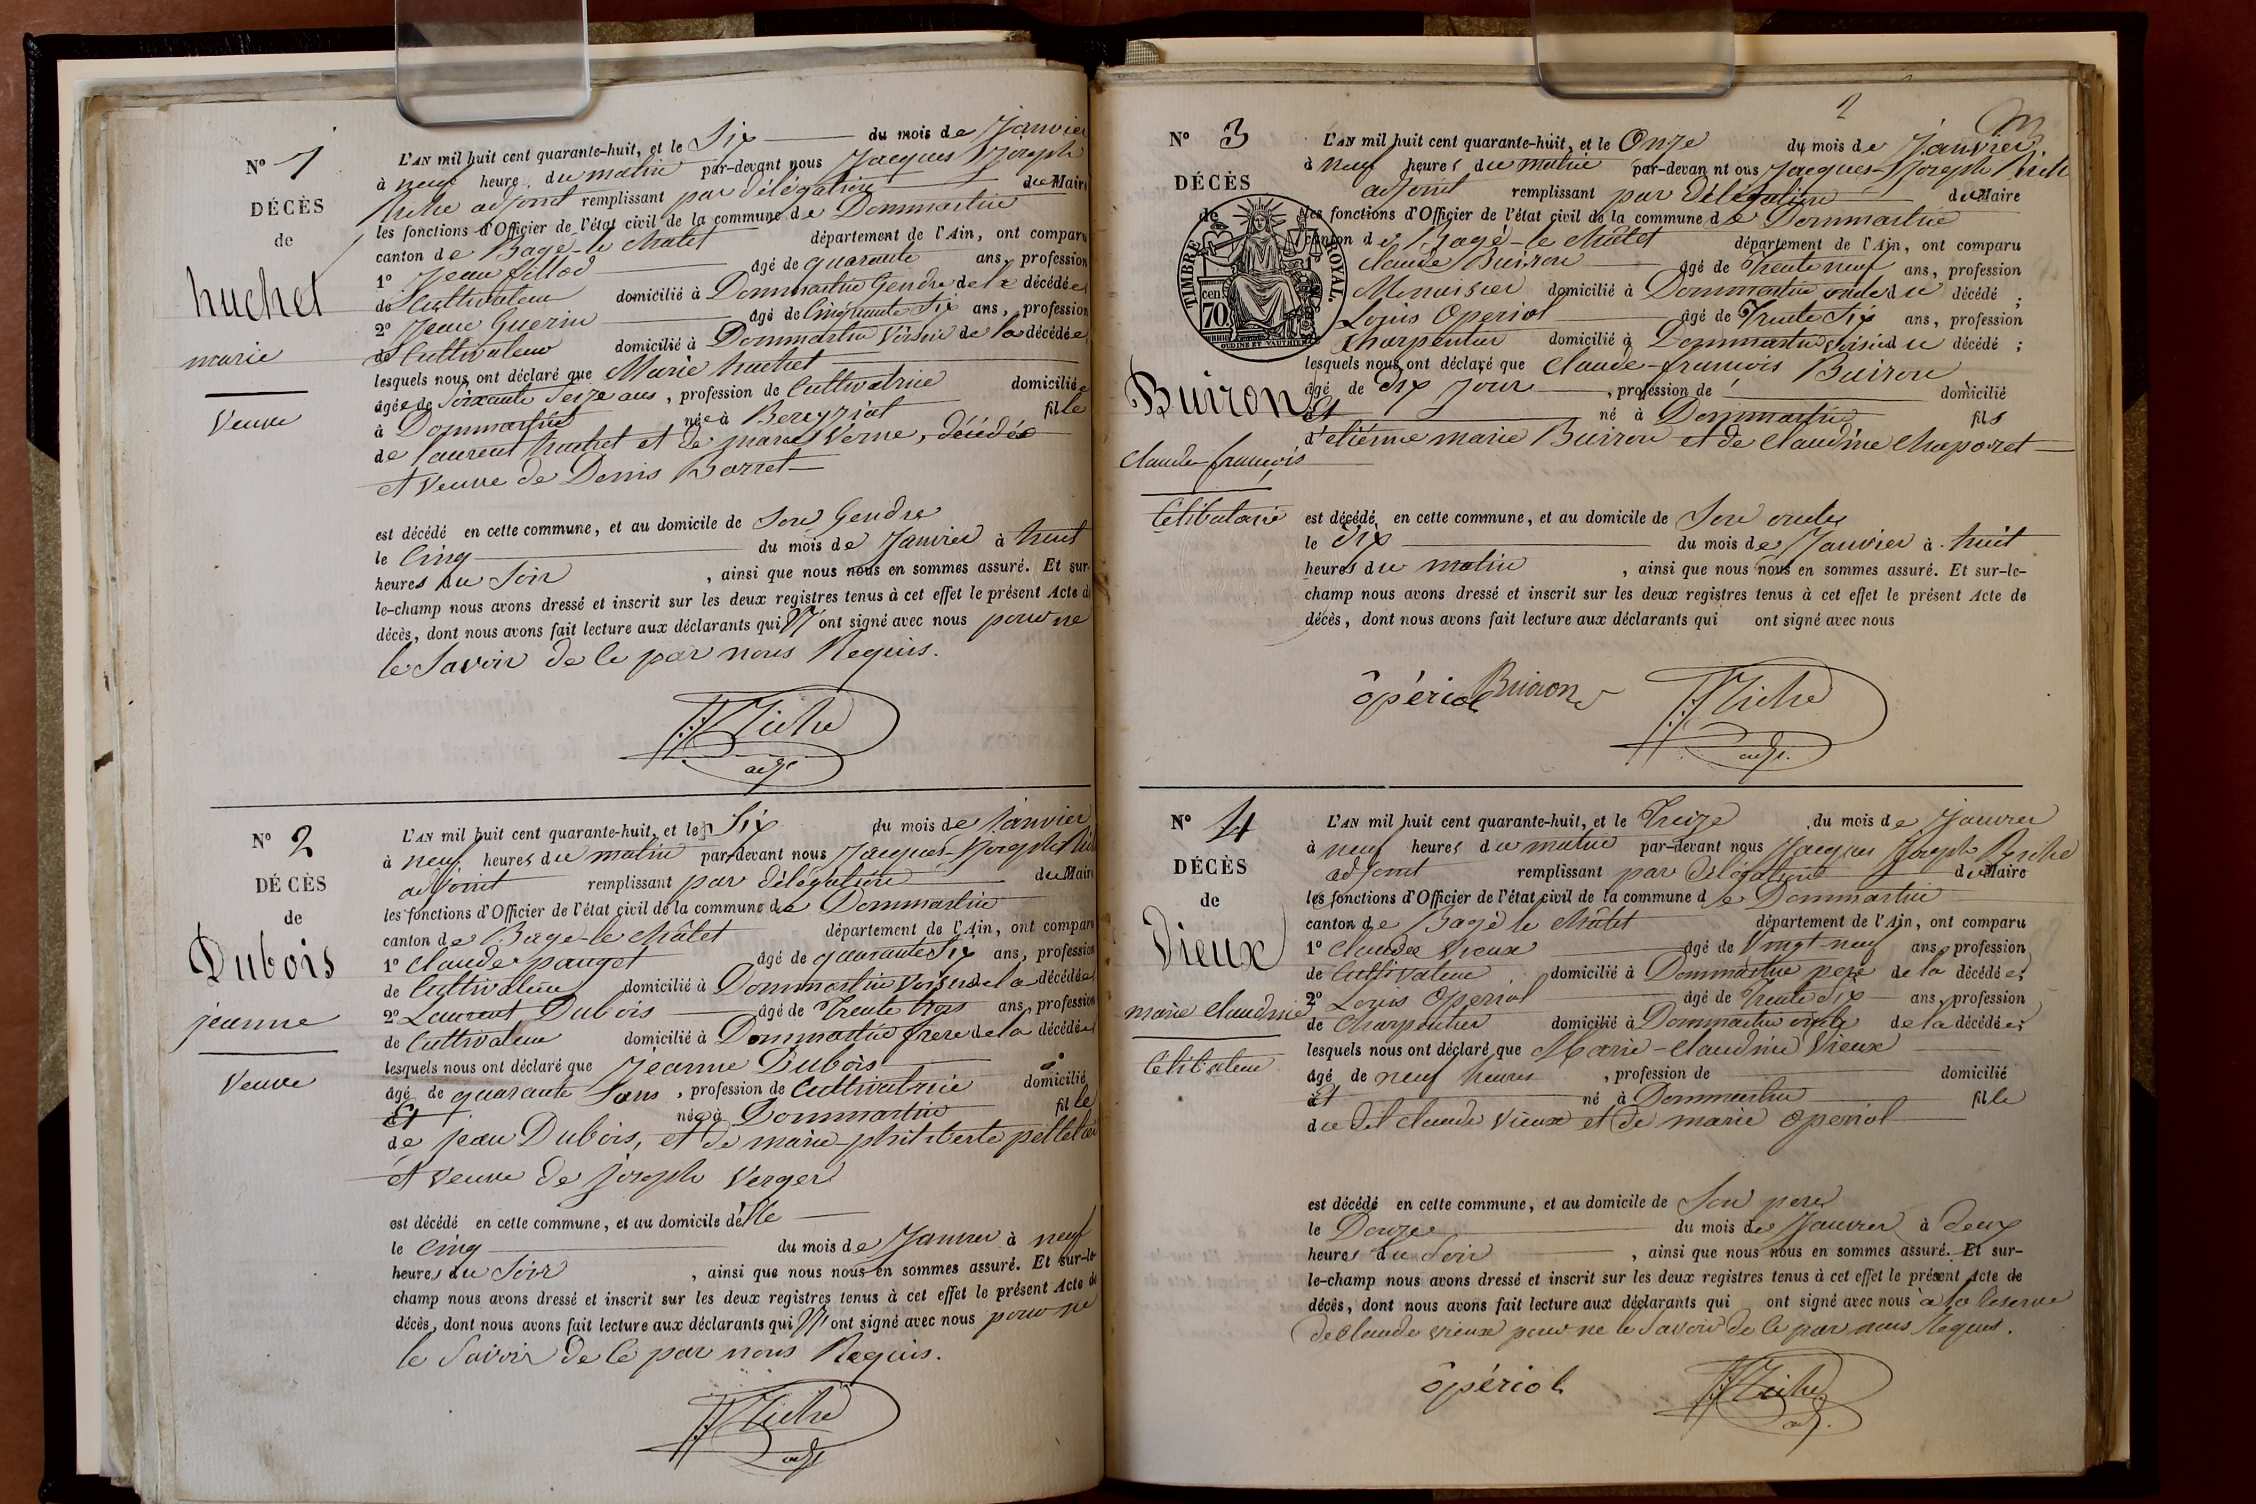 N° 1
DÉCÈS
de
huchet
marie
Veuve
L'AN mil huit cent quarante-huit, et le Six du mois de Janvier
à neuf heure du matin par-devant nous Jacques Joseph
adjoint remplissant par délégation du Maire
les fonctions d'Officier de l'état civil de la commune de Dommartin
canton de Bagé-le châtel département de l'Ain, ont comparu
1° Jean fillod âgé de quarante ans, profession
de Cultivateur domicilié à Dommartin Gendre de la décédée
2° Jean Guerin âgé de Cinquante Six ans, profession
de Cultivateur domicilié à Dommartin Voisin de la décédée
lesquels nous ont déclaré que Marie huchet
âgée de Soixante Seize ans, profession de Cultivatrice domiciliée
à Dommartin née à Bereyziat fille
de laurent huchet et de marie Verne, décédés
et Veuve de Denis Borret
est décédé en cette commune, et au domicile de Son Gendre
le Cinq du mois de Janvier à huit
heures du Soir, ainsi que nous nous en sommes assuré. Et sur-
le-champ nous avons dressé et inscrit sur les deux registres tenus à cet effet le présent Acte d
décès, dont nous avons fait lecture aux déclarants qui N'ont signé avec nous pour ne
le Savoir de ce par nous Requis.
adj.
N° 2
DÉCÈS
de
Dubois
jeanne
Veuve
L'AN mil huit cent quarante-huit, et le Six du mois de Janvier
à neuf heures du matin par-devant nous Jacques-Joseph
adjoint remplissant par délégation du Maire
les fonctions d'Officier de l'état civil de la commune de Dommartin
canton de Bagé-le châtel département de l'Ain, ont comparu
1° Claude pauget âgé de quarante Six ans, profession
de Cultivateur domicilié à Dommartin Voisin de la décédée
2° Laurent Dubois âgé de Trente trois ans, profession
de Cultivateur domicilié à Dommartin frère de la décédée
lesquels nous ont déclaré que Jeanne Dubois
âgé de quarante ans, profession de Cultivatrice domicilié
Et née à Dommartin fille
de jean Dubois, et de marie-philiberte pelletier
et veuve de joseph Verger
est décédé en cette commune, et au domicile d'elle
le Cinq du mois de Janvier à neuf
heures du Soir, ainsi que nous nous en sommes assuré. Et sur-le-
champ nous avons dressé et inscrit sur les deux registres tenus à cet effet le présent Acte de
décès, dont nous avons fait lecture aux déclarants qui N'ont signé avec nous pour ne
le Savoir de ce par nous Requis.
adj.
2
N° 3
DÉCÈS
de
TIMBRE ROYAL.
70 cen.
Buiron
Claude-françois
Célibataire
L'AN mil huit cent quarante-huit, et le Onze du mois de Janvier
à neuf heures du matin par-devan nt ous Jacques-Joseph
adjoint remplissant par Délégation du Maire
les fonctions d'Officier de l'état civil de la commune de Dommartin
canton de Bagé-le châtel département de l'Ain, ont comparu
Claude Buiron âgé de Trente neuf ans, profession
Menuisier domicilié à Dommartin oncle du décédé ;
Louis Operiol âgé de Trente Six ans, profession
Charpentier domicilié à Dommartin voisin du décédé ;
lesquels nous ont déclaré que Claude-françois Buiron
âgé de Dix jour, profession de domicilié
Et né à Dommartin fils
d'etienne marie Buiron et de claudine chaporet
est décédé en cette commune, et au domicile de Son oncle
le dix du mois de Janvier à huit
heures du matin, ainsi que nous nous en sommes assuré. Et sur-le-
champ nous avons dressé et inscrit sur les deux registres tenus à cet effet le présent Acte de
décès, dont nous avons fait lecture aux déclarants qui ont signé avec nous
ôpériol Buiron
adj.
N° 4
DÉCÈS
de
Vieux
marie claudine
Célibataire
L'AN mil huit cent quarante-huit, et le Treize du mois de Janvier
à neuf heures du matin par-devant nous Jacques Joseph
adjoint remplissant par délégation du Maire
les fonctions d'Officier de l'état civil de la commune de Dommartin
canton de Bagé le châtel département de l'Ain, ont comparu
1° Claude Vieux âgé de Vingt-neuf ans, profession
de Cultivateur domicilié à Dommartin père de la décédée ;
2° Louis Operiol âgé de Trente Six ans, profession
de Charpentier domicilié à Dommartin oncle de la décédée ;
lesquels nous ont déclaré que Marie-Claudine Vieux
âgé de neuf heures, profession de domicilié
Et né à Dommartin fille
du dit Claude Vieux et de marie Operiol
est décédé en cette commune, et au domicile de Son pere
le Douze du mois de Janvier à Deux
heures du Soir, ainsi que nous nous en sommes assuré. Et sur-
le-champ nous avons dressé et inscrit sur les deux registres tenus à cet effet le présent Acte de
décès, dont nous avons fait lecture aux déclarants qui ont signé avec nous à la Reserve
de Claude vieux pour ne le Savoir de ce par nous Requis.
ôpériol
adj.